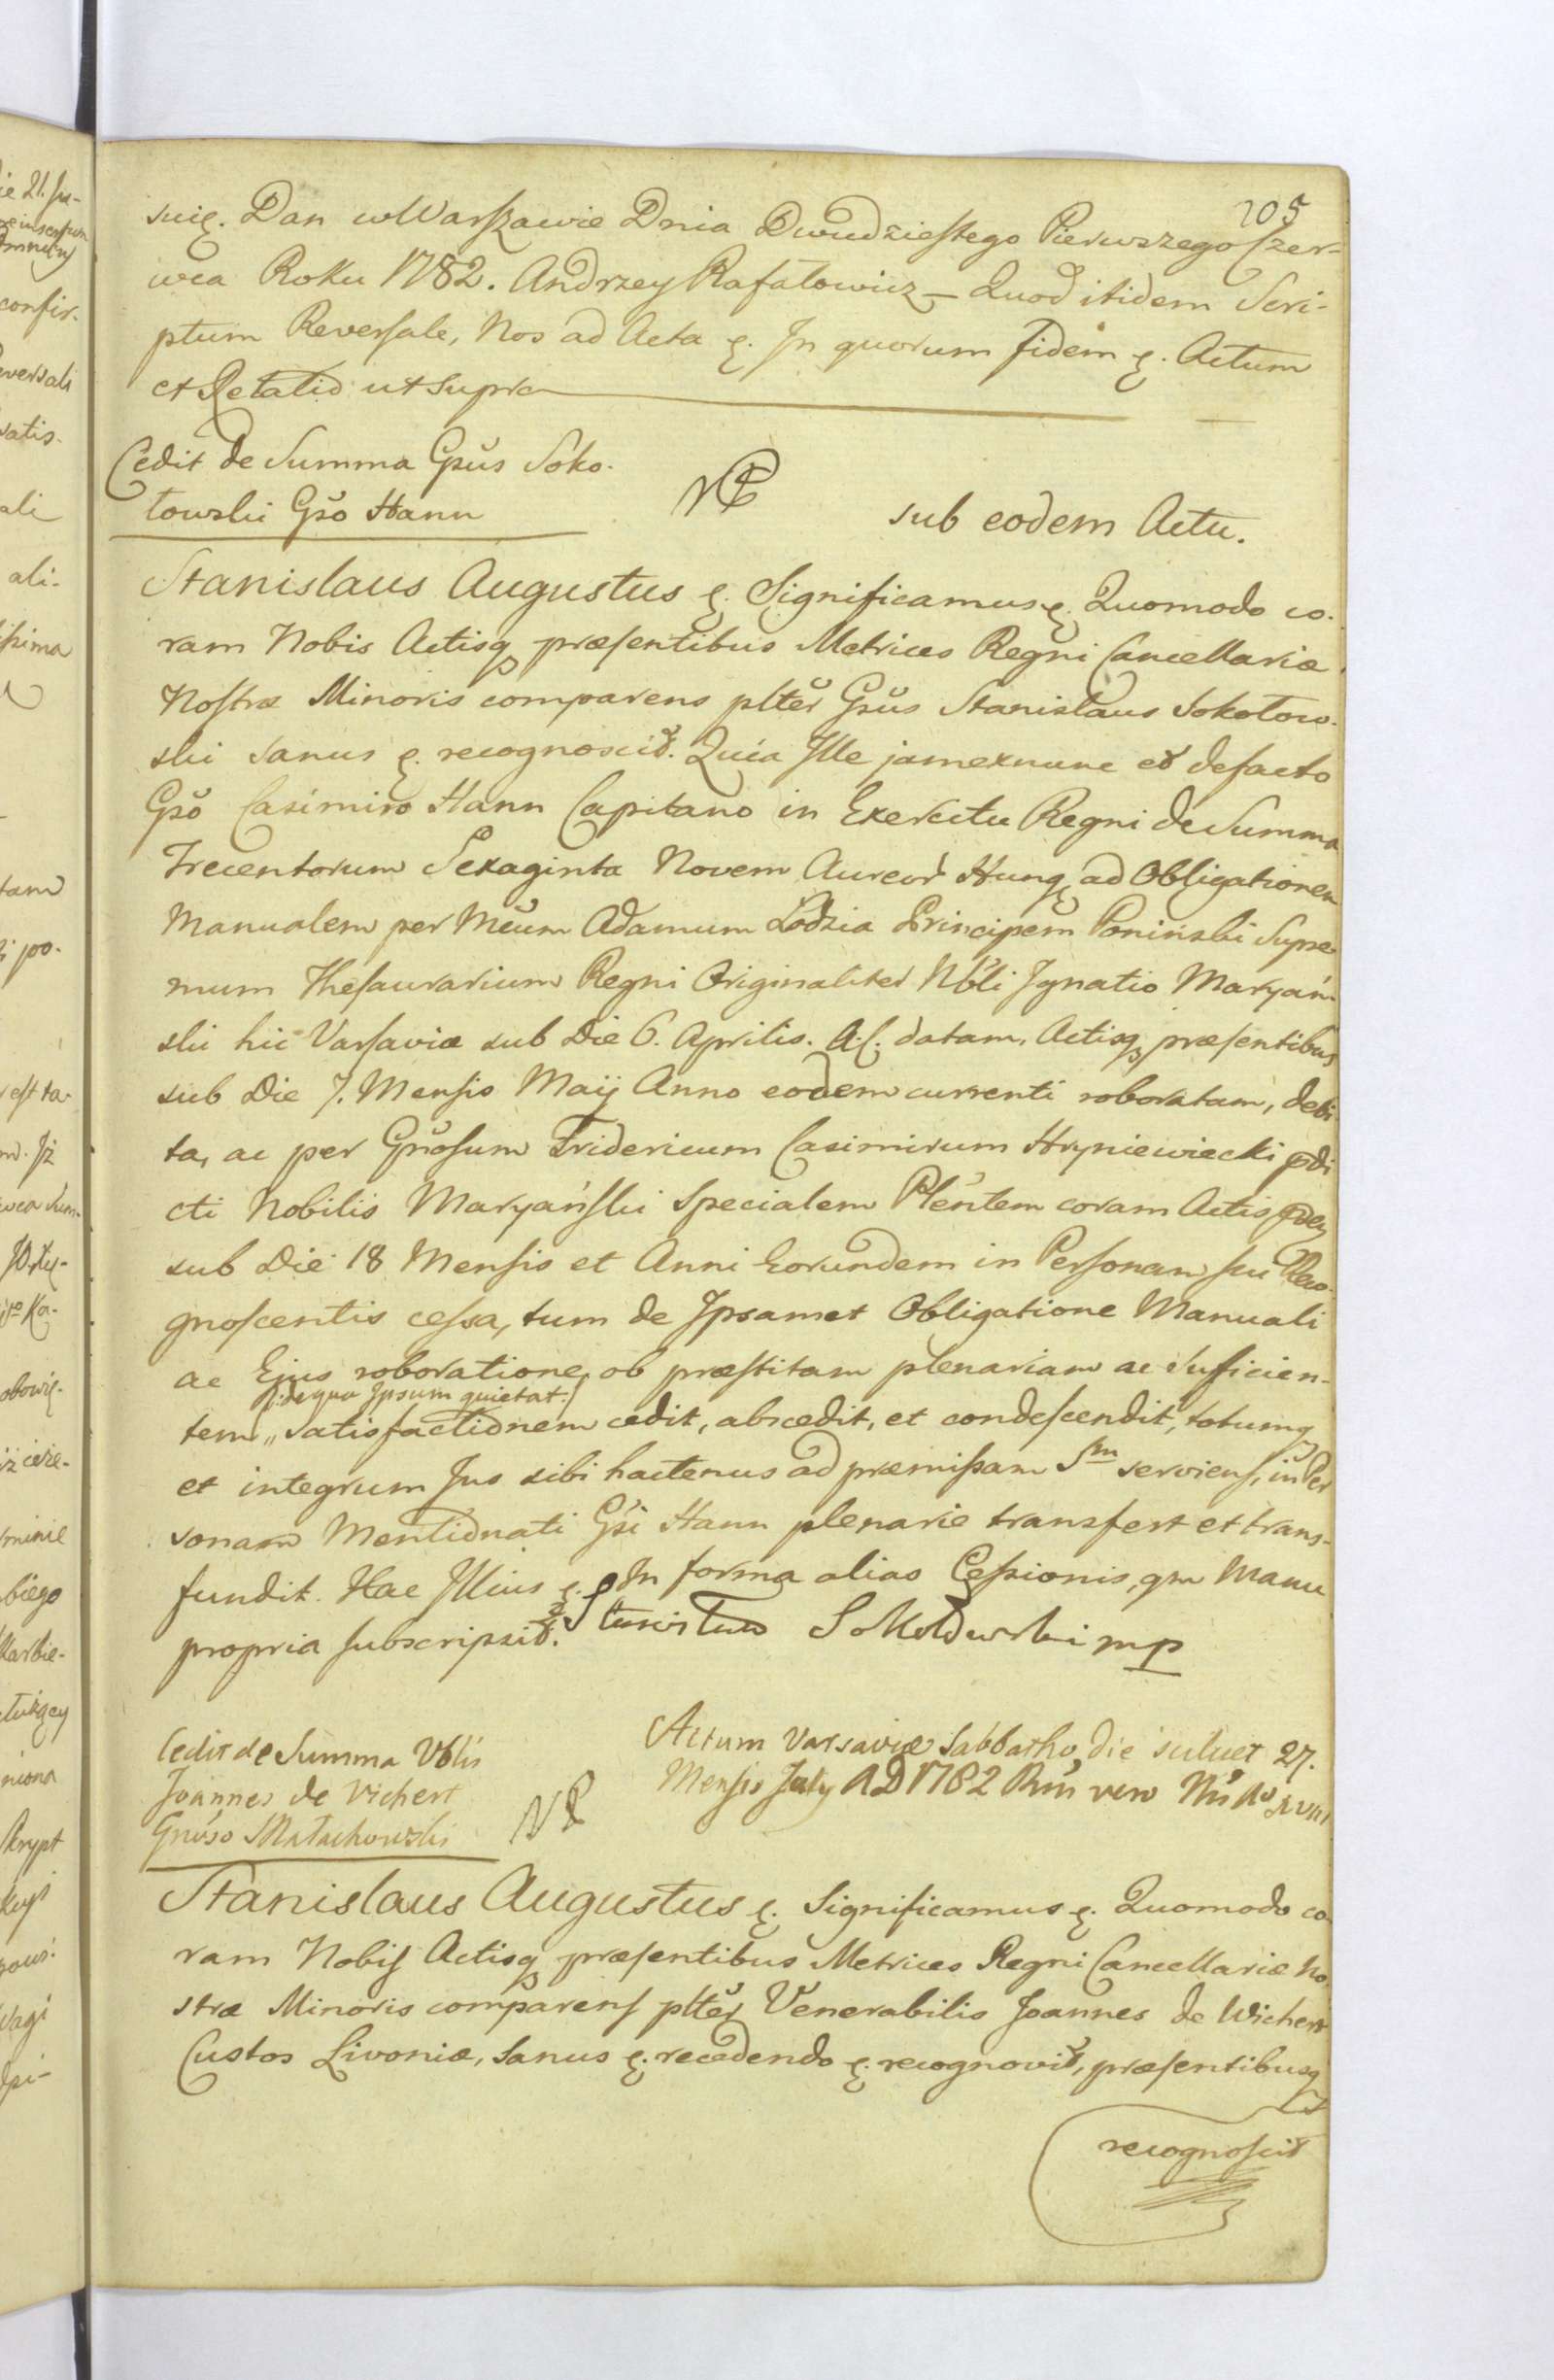 205
suię. Dan w Warszawie Dnia Dwudziestego Pierwszego Czer-
wca Roku 1782. Andrzey Rafałowicz – Quod itidem Scri-
ptum Reversale, Nos ad Acta &. In quorum fidem &. Actum
et Relatio ut supra
Cedit de Summa Gsus Soko-
łowski Gso Hann
sub eodem Actu.
Stanislaus Augustus &. Significamus &. Quomodo co-
ram Nobis Actisq præsentibus Metrices Regni Cancellariæ
Nostræ Minoris comparens plter Gsus Stanislaus Sokołow-
ski Sanus &. recognoscit. Quia Ille jam exnunc et de facto
Gso Casimiro Hann Capitano in Exercitu Regni de Summa
Trecentorum Sexaginta Novem Aureor Hung ad Obligationem
Manualem per Meum Adamum Lodzia Principem Poninski Supre-
mum Thesaurarium Regni Originaliter Nbli Ignatio Maryań-
ski hic Varsaviæ sub Die 6. Aprilis. A. C. datam, Actisq præsentibus
sub Die 7. Mensis Maij Anno eodem currenti roboratam, debi-
ta, ac per Gnosum Fridericum Casimirum Hryniewiecki pdi-
cti Nobilis Maryański Specialem Plentem coram Actis
sub Die 18 Mensis et Anni Eorundem in Personam seu Reco-
gnoscentis cessa, tum de Ipsamet Obligatione Manuali
ac Ejus roboratione, ob præstitam plenariam ac suficien-
/: de qua Ipsum quietat :/
tem „ satisfactionem cedit, abscedit, et condescendit, totumq
et integrum Jus sibi hactenus ad præmissam Sm serviens, in Per-
sonam Mentionati Gsi Hann plenarie transfert et trans-
fundit. Hac Illius &. In forma alias Cessionis, qm Manu
propria subscripsit. Stanisław Sokołowski mp
Cedit de Summa Vblis
Joannes de Vichert
Gnoso Małachowski
Actum Varsaviæ Sabbatho, die scilicet 27.
Mensis July AD 1782 Rni vero Nri Ao XVIII
Stanislaus Augustus &. Significamus &. Quomodo co-
ram Nobis Actisq præsentibus Metrices Regni Cancellariæ No-
stræ Minoris comparens plter Venerabilis Joannes de Wichert
Custos Livoniæ, Sanus &. recedendo &. recognovit, præsentibusq
recognoscit